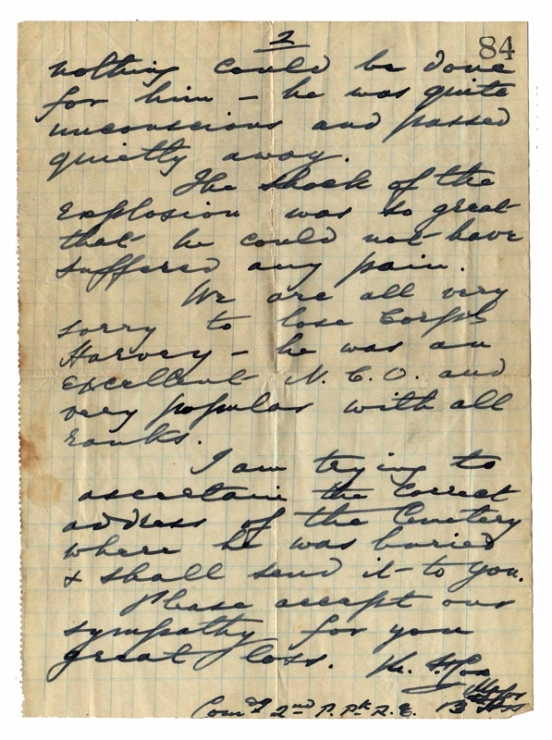 2
84
nothing could be done
for him - he was quite
unconscious and passed
quietly away.
The shock of the
explosion was so great
that he could not have
suffered any pain.
We are all very
sorry to lose Corpl
Harvey - he was an
excellent N.C.O. and
very popular with all
ranks.
I am trying to
ascertain the correct
address of the Cemetery
where he was buried
& shall send it to you.
Please accept our
sympathy for you
great loss.
Major
Comdg 2nd P. Pk R.E.